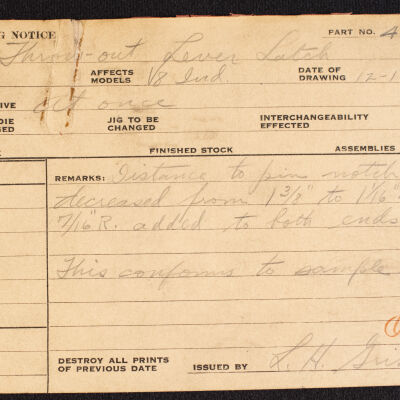 G NOTICE PART NO. 4
Throw-out Lever Latch
AFFECTS MODELS V8 Ind. DATE OF DRAWING 12-1
IVE at once
DIE GED JIG TO BE CHANGED INTERCHANGEABILITY EFFECTED
FINISHED STOCK ASSEMBLIES
REMARKS: Distance to pin notch
decreased from 1 3/8" to 1 1/16"
7/16" R. added to both ends
This conforms to sample
DESTROY ALL PRINTS OF PREVIOUS DATE ISSUED BY L. H.